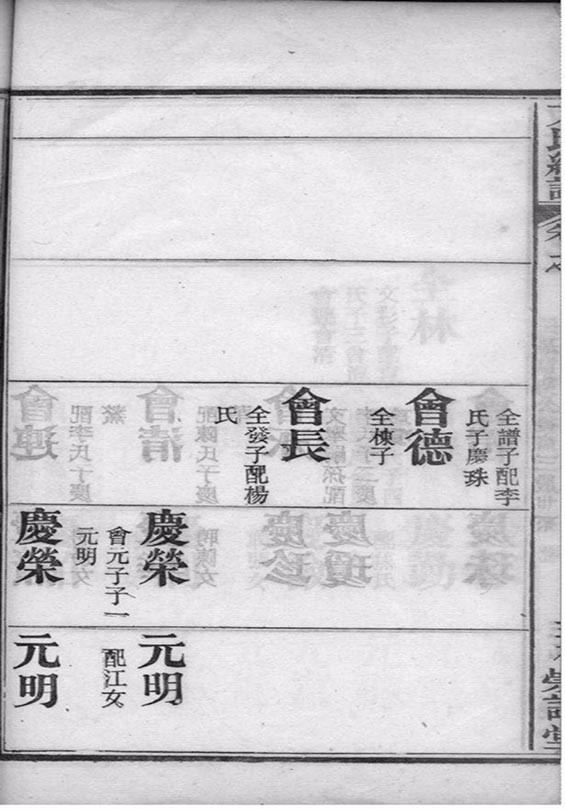 全譜子配李
氏子慶珠
會德
全棟子
會長
全發子配楊
氏
慶榮
會元子子一
元明
慶榮
元明
配江女
元明